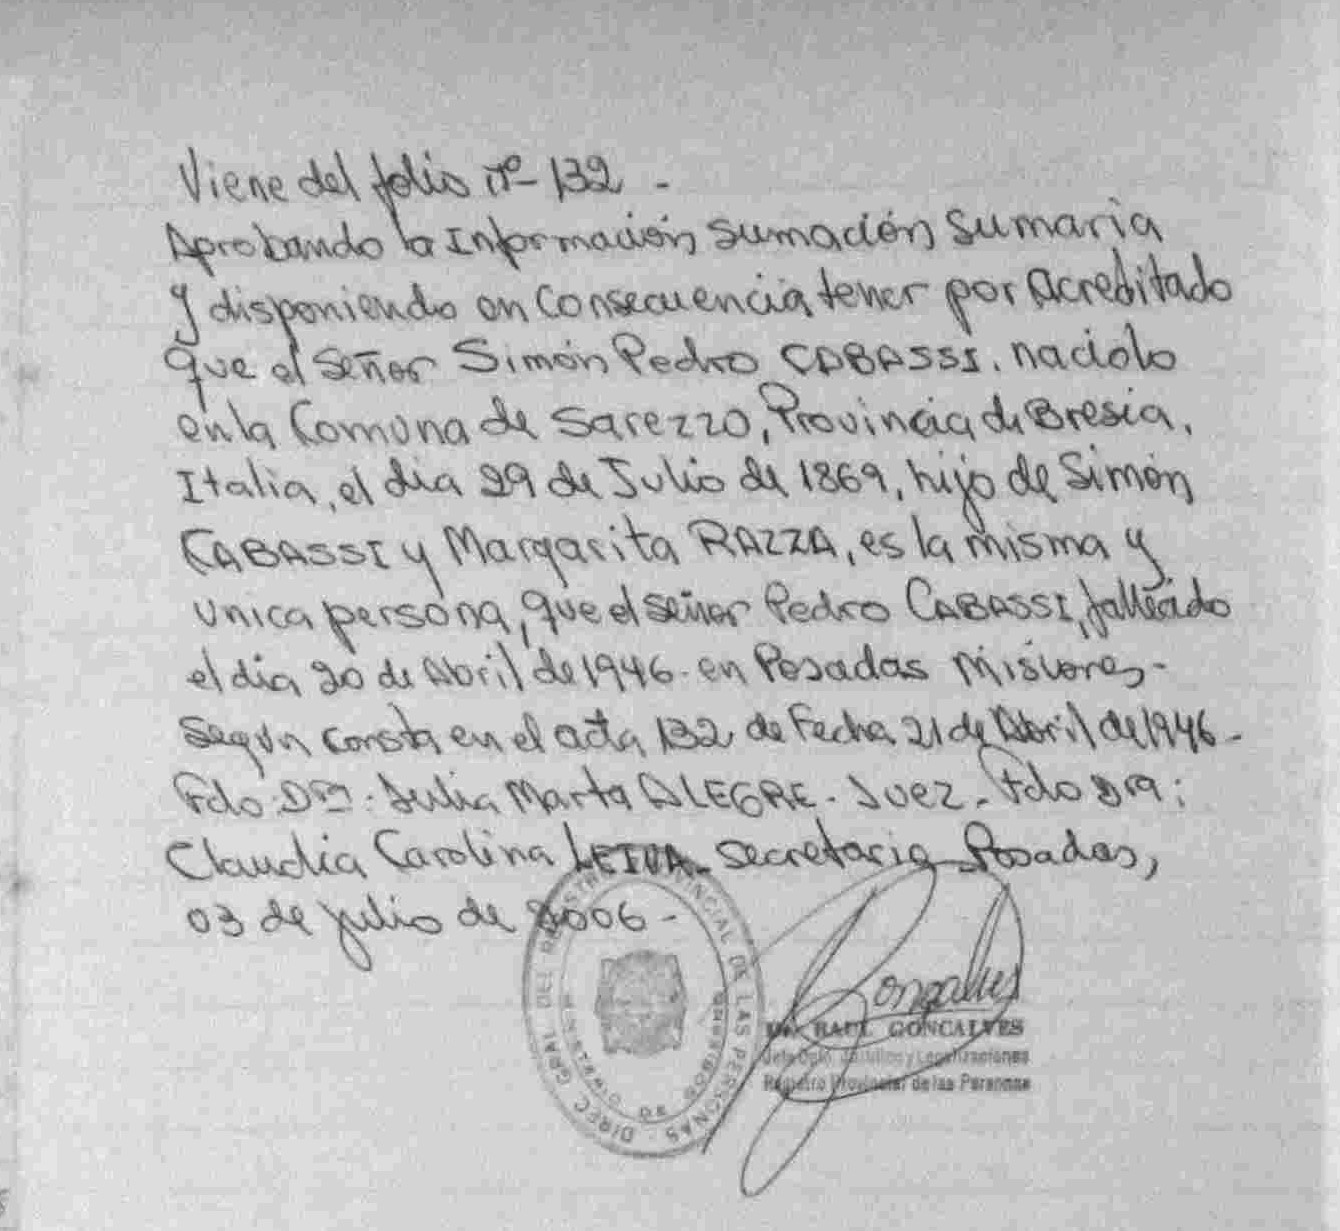 Viene del folio nº 132 -
Aprobando la Información sumación Sumaria
y disponiendo en Consecuencia tener por Acreditado
que el Señor Simón Pedro CABASSI. nacido
en la Comuna de Sarezzo, Provincia de Bresia,
Italia, el dia 29 de Julio de 1869, hijo de Simón
CABASSI y Margarita RAZZA, es la misma y
unica persona, que el señor Pedro CABASSI, fallecido
el dia 20 de Abril de 1946. en Posadas Misiones-
Según consta en el acta 132 de Fecha 21 de Abril de 1946-
Fdo: DRA. Julia Marta ALEGRE. Juez. Fdo DRA:
Claudia Carolina LEIVA- Secretaria Posadas,
03 de julio de 2006-
DIREC. GRAL. DEL REGISTRO PROVINCIAL DE LAS PERSONAS
MINISTERIO DE GOBIERNO
Goncalves
Dr. RAUL GONCALVES
Jefe Dpto. Jurídico y Legalizaciones
Registro Provincial de las Personas